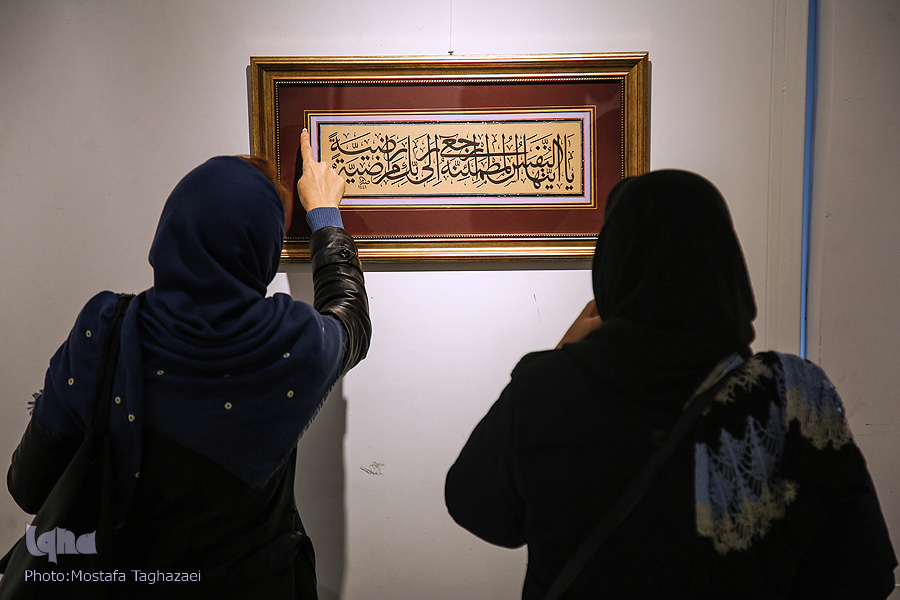 يا ايتها النفس المطمئنة ارجعي الى ربك راضية مرضية
iqna
Photo:Mostafa Taghazaei